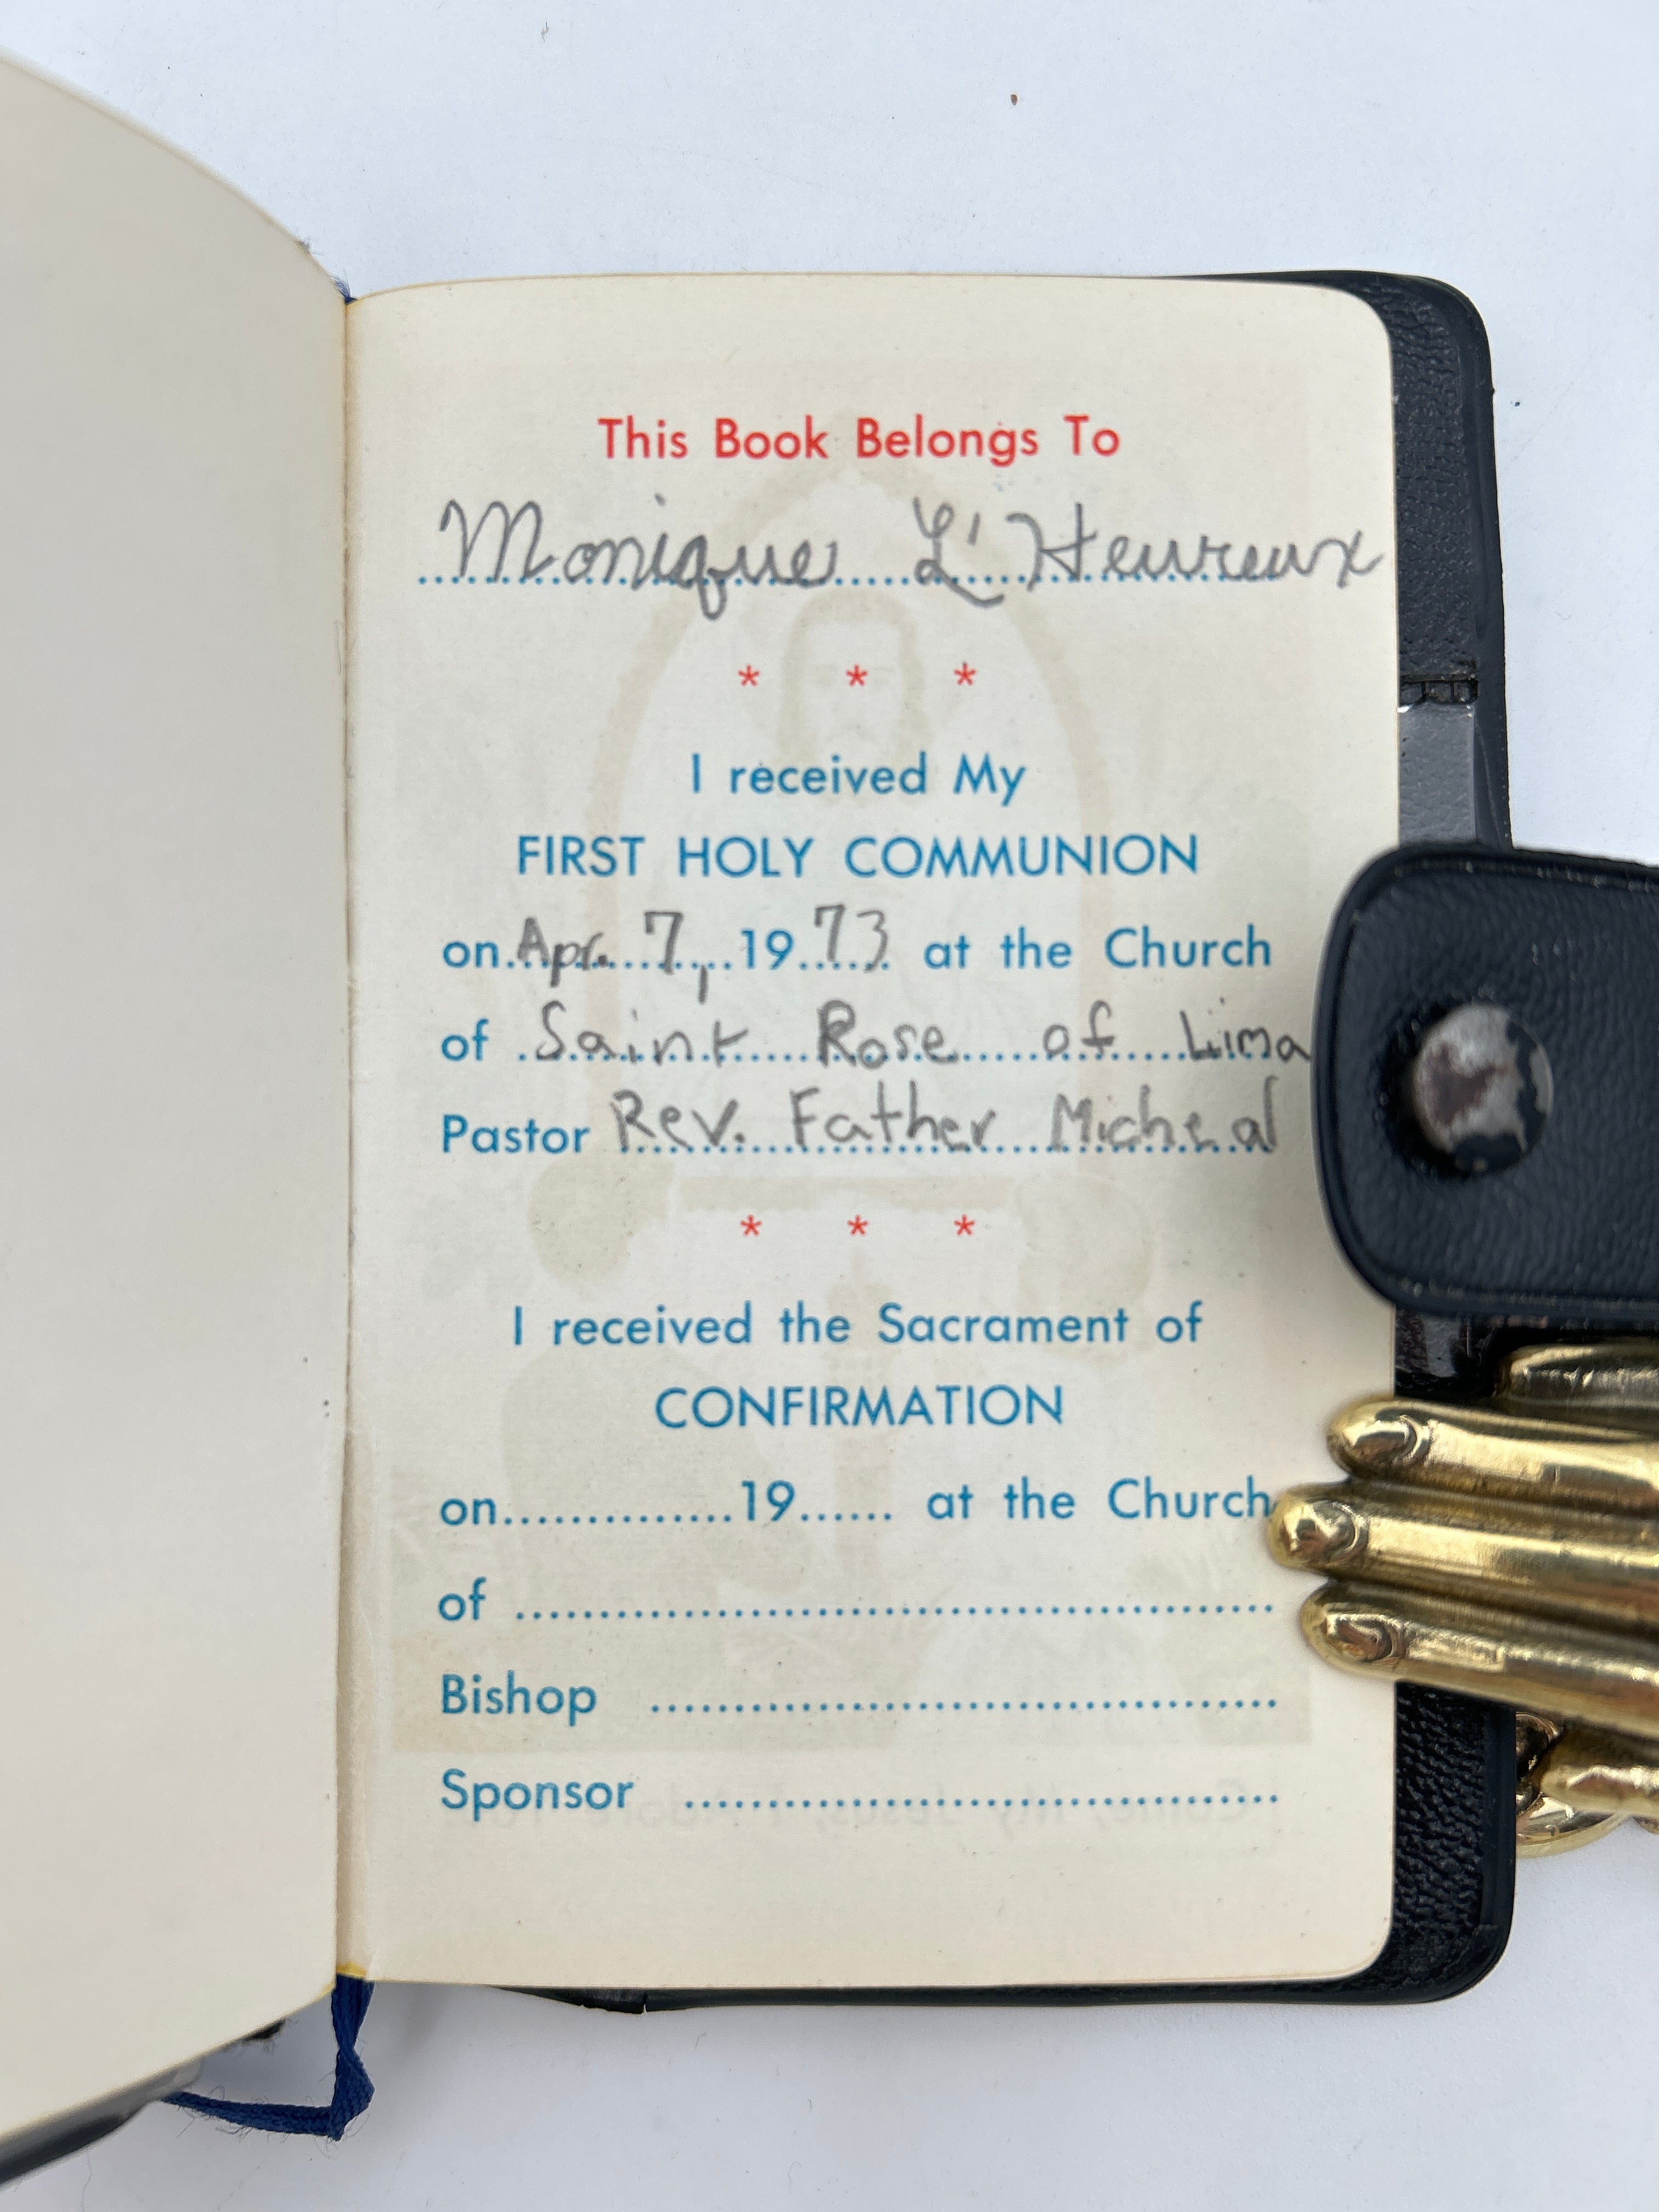 This Book Belongs To
Monique L'Heureux
* * *
I received My
FIRST HOLY COMMUNION
on Apr. 7, 1973 at the Church
of Saint Rose of Lima
Pastor Rev. Father Micheal
* * *
I received the Sacrament of
CONFIRMATION
on..............19...... at the Church
of ..............................................
Bishop ......................................
Sponsor ....................................